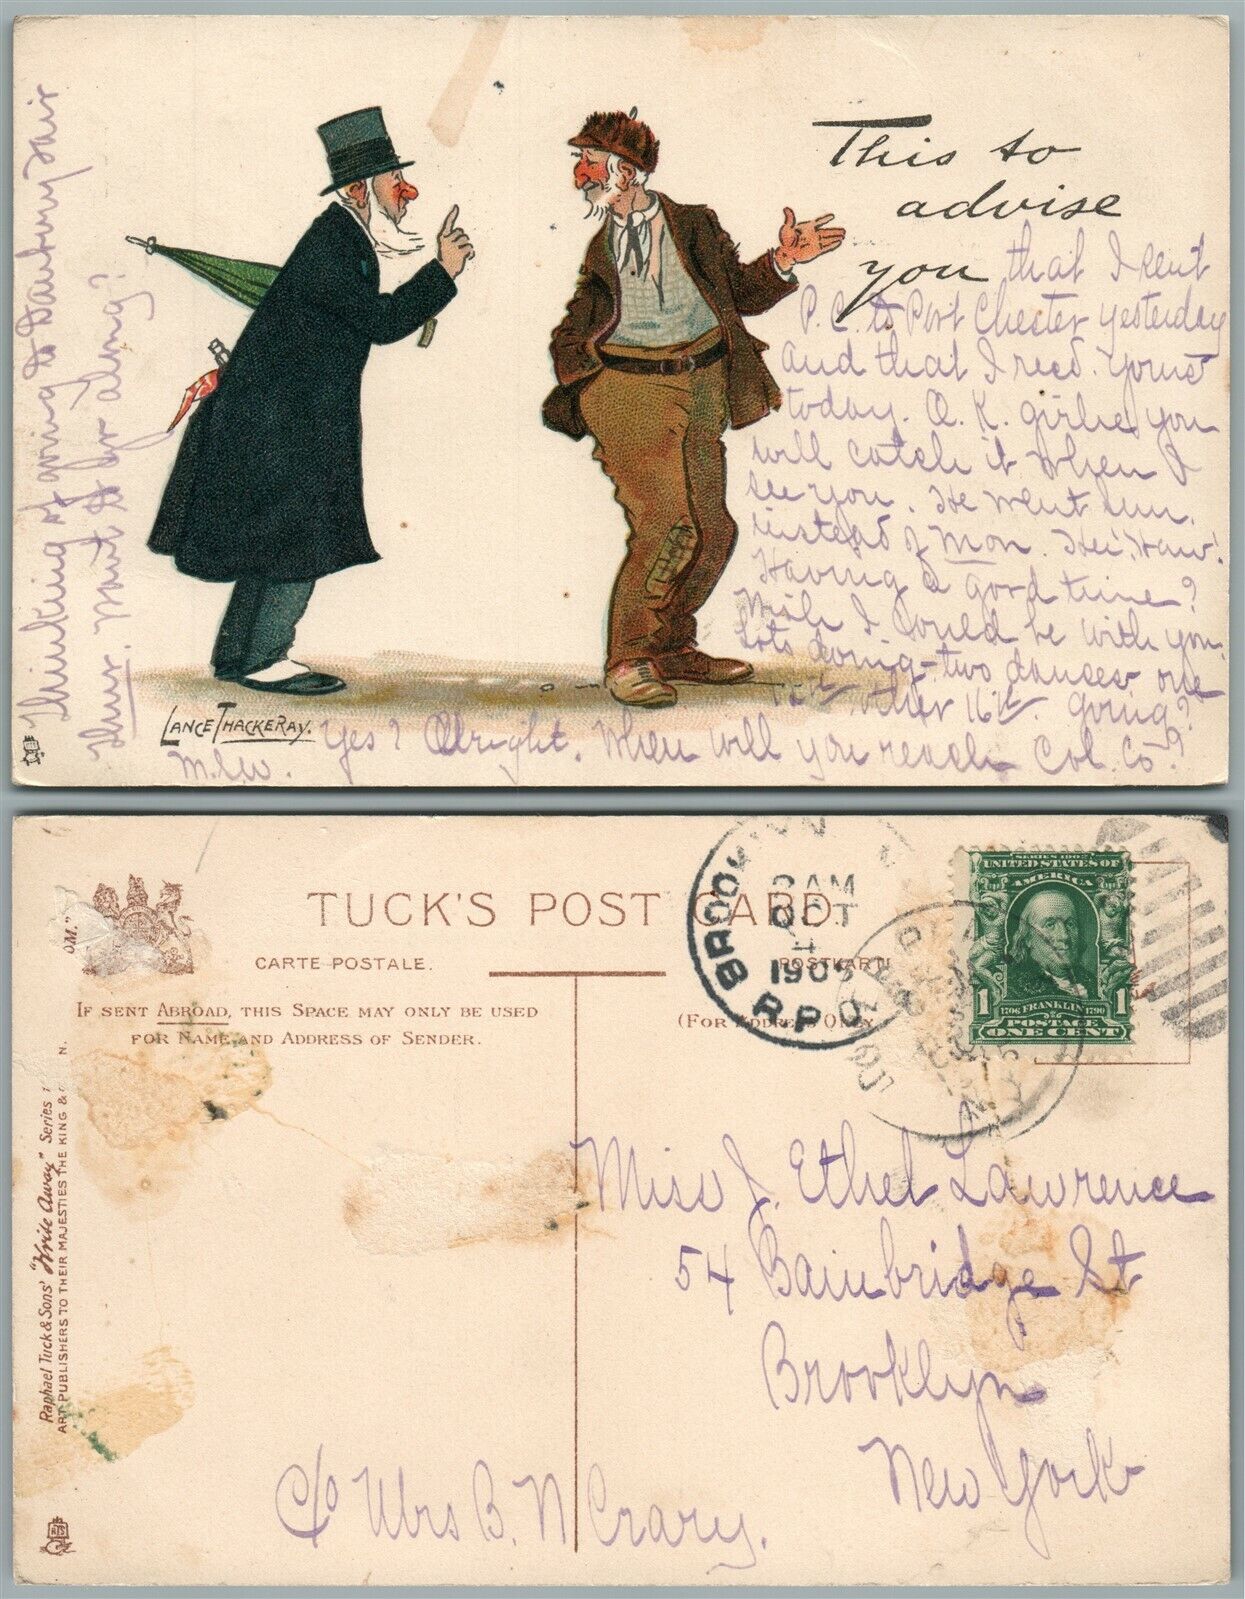 This to
advise
you that I sent
P. C. to Port Chester yesterday
and that I recd. yours
today. O. K. girlie you
will catch it when I
see you. He went Sun.
instead of Mon. Hee! Haw!
Having a good time?
Wish I could be with you.
Lots doing - two dances one
15th other 16th. Going?
Yes? Alright. When will you reach Col. Co?
M.E.W.
Thinking of going to Danbury Fair
Thur. Want to go along?
LANCE THACKERAY.
TUCK'S POST CARD.
CARTE POSTALE.
POSTKARTE
IF SENT ABROAD, THIS SPACE MAY ONLY BE USED
FOR NAME AND ADDRESS OF SENDER.
(FOR ADDRESS ONLY
OM."
Raphael Tuck & Sons' "Write Away" Series
ART PUBLISHERS TO THEIR MAJESTIES THE KING &
N.
BROOKLYN
AM
OCT
4
190
R.P.O.
N.Y.
SERIES 1902
UNITED STATES OF
AMERICA
1 1
1706 FRANKLIN 1790
POSTAGE
ONE CENT
Miss J. Ethel Lawrence
54 Bainbridge St
Brooklyn
New York
c/o Mrs B. N Crary.